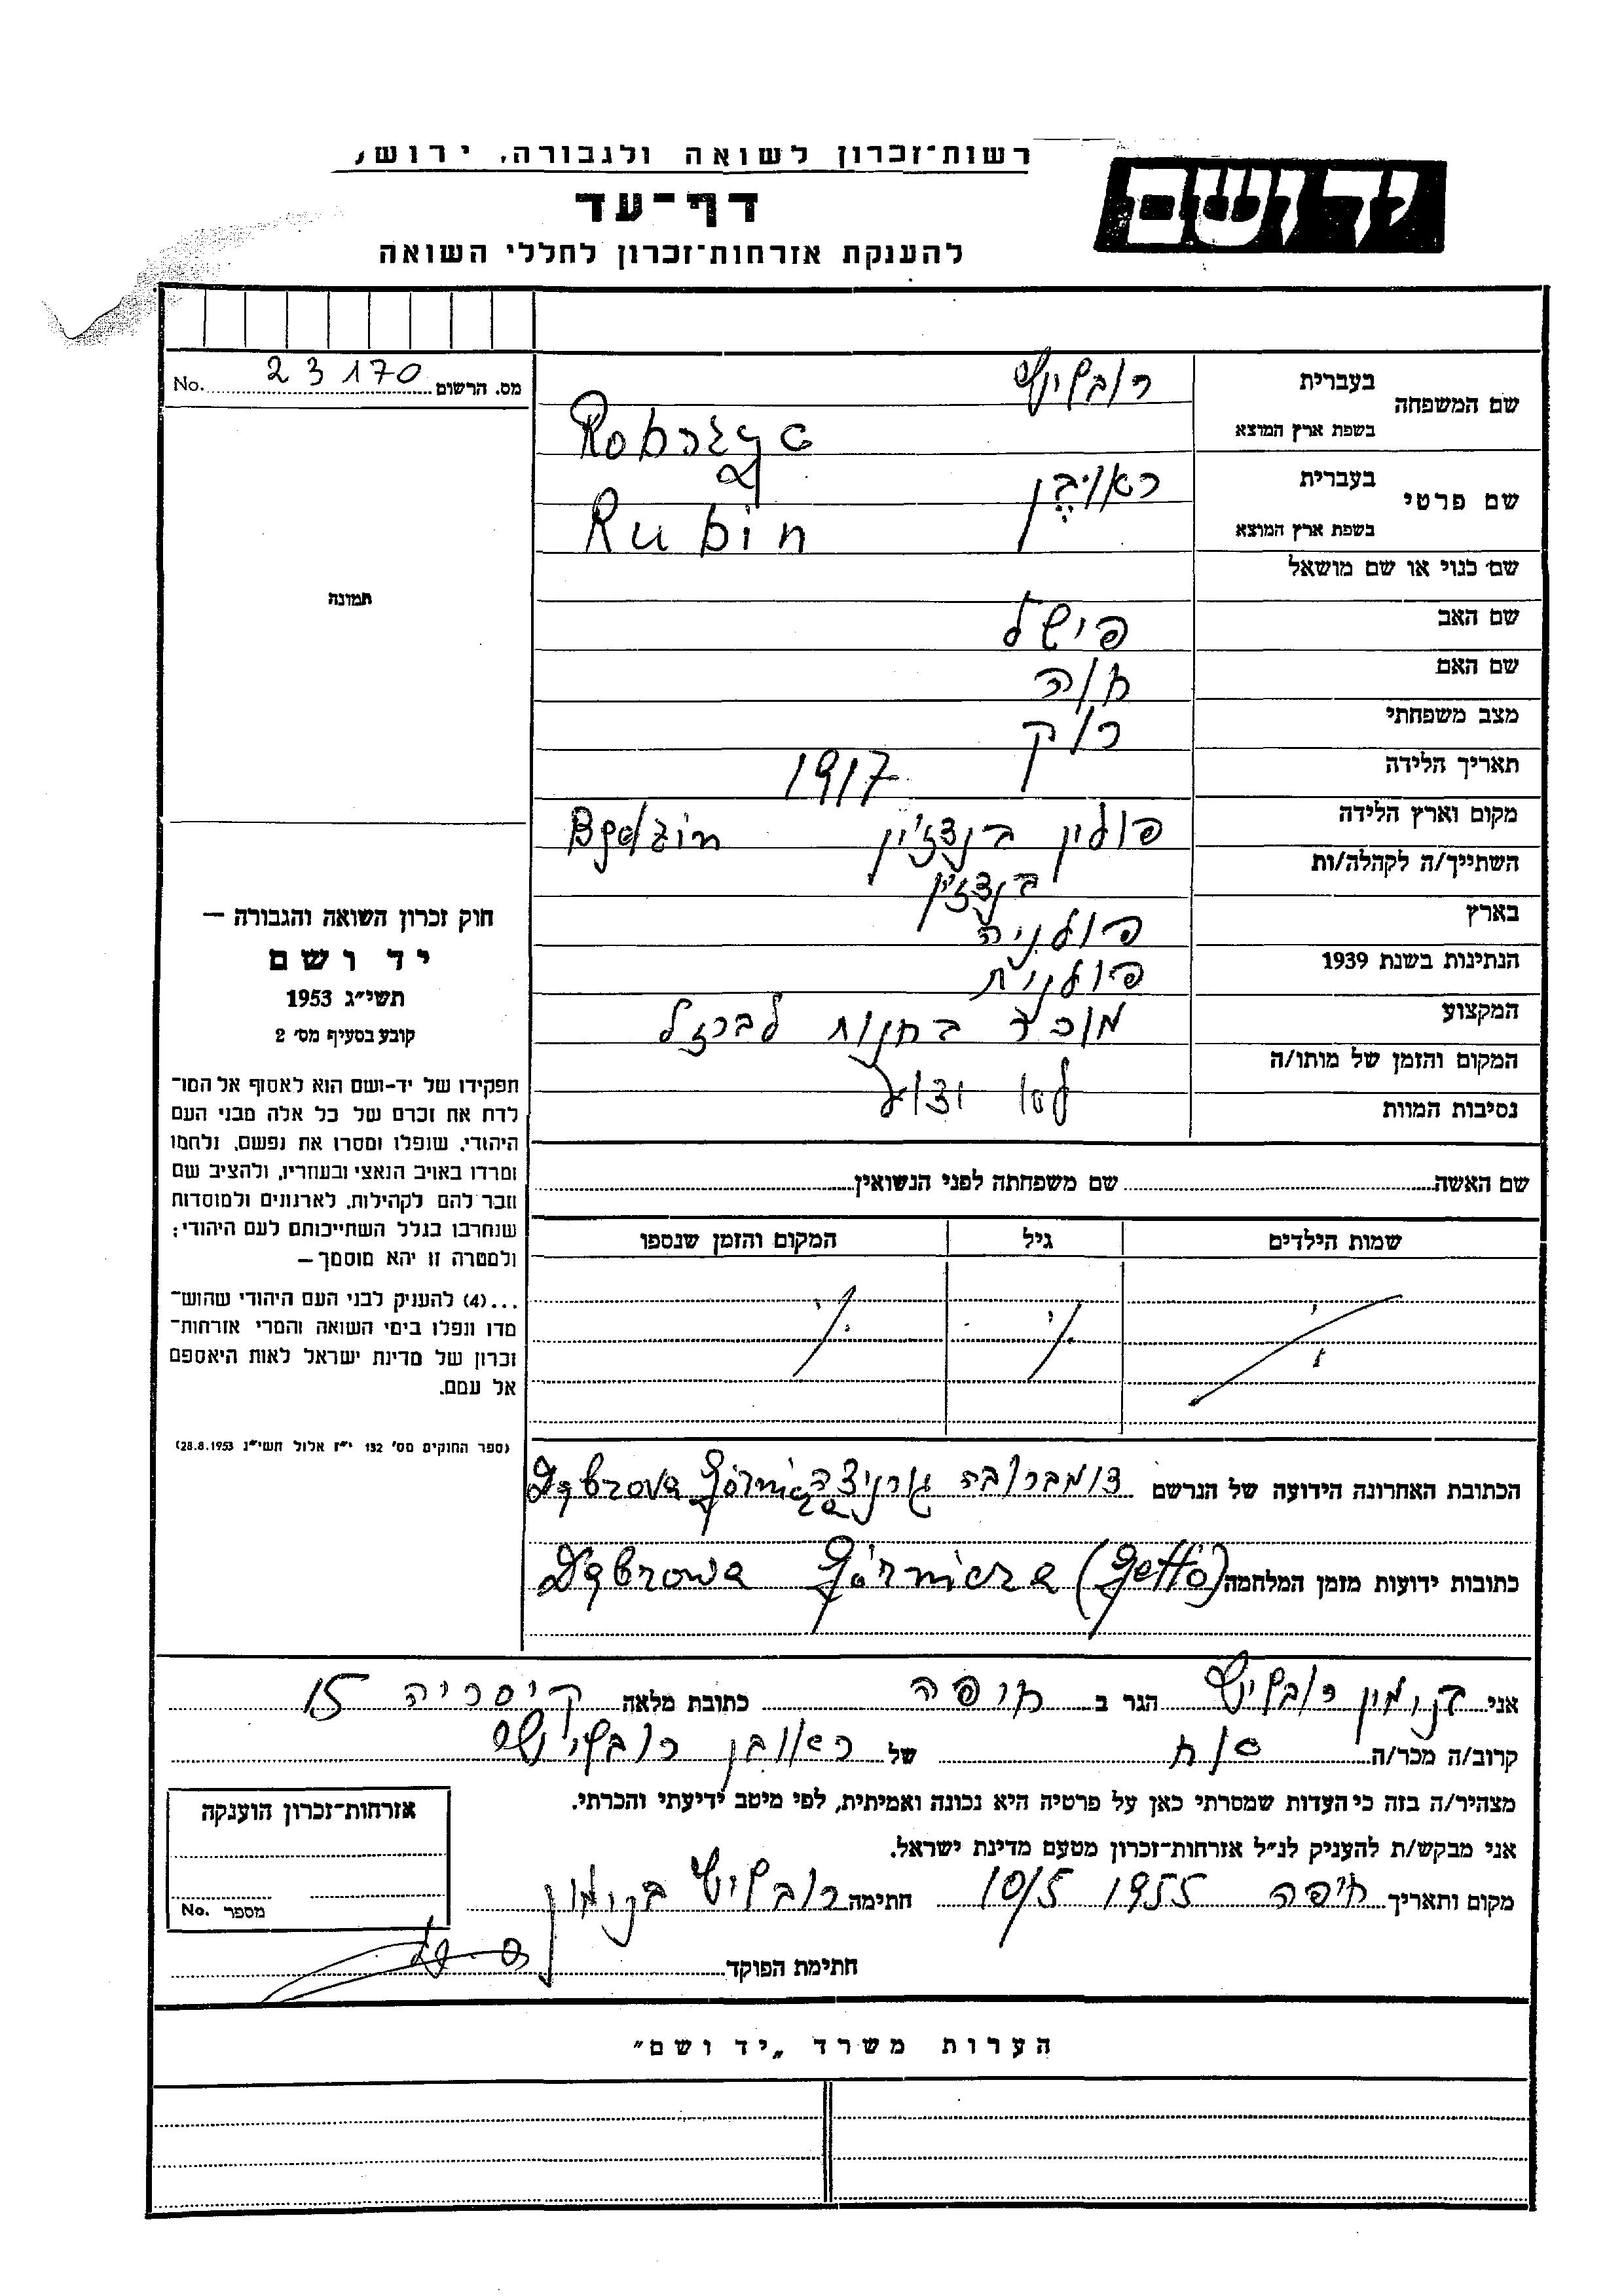 רשות־זכרון לשואה ולגבורה, ירוש׳
ידושם
דף־עד
להענקת אזרחות־זכרון לחללי השואה
מס. הרשום 23170 No.
תמונה
שם המשפחה
בעברית
בשפת ארץ המוצא
שם פרטי
בעברית ראובן
בשפת ארץ המוצא Rubin
שם כנוי או שם מושאל
שם האב פישל
שם האם חוה
מצב משפחתי רוק
תאריך הלידה 1917
מקום וארץ הלידה פולין בנדז'ין
השתייך/ה לקהלה/ות בנדז'ין
בארץ פולניה
הנתינות בשנת 1939 פולנית
המקצוע מוכר בחנות לברזל
המקום והזמן של מותו/ה
נסיבות המוות
חוק זכרון השואה והגבורה –
יד ושם
תשי״ג 1953
קובע בסעיף מס׳ 2
תפקידו של יד-ושם הוא לאסוף אל המו־
לדת את זכרם של כל אלה מבני העם
היהודי, שנפלו ומסרו את נפשם, נלחמו
ומרדו באויב הנאצי ובעוזריו, ולהציב שם
וזכר להם לקהילות, לארגונים ולמוסדות
שנחרבו בגלל השתייכותם לעם היהודי;
ולמטרה זו יהא מוסמך –
...(4) להעניק לבני העם היהודי שהוש־
מדו ונפלו בימי השואה והמרי אזרחות־
זכרון של מדינת ישראל לאות היאספם
אל עמם.
(ספר החוקים מס׳ 132 י״ז אלול תשי״ג 28.8.1953)
שם האשה שם משפחתה לפני הנשואין
שמות הילדים גיל המקום והזמן שנספו
הכתובת האחרונה הידועה של הנרשם דומברובה גורניצה Dąbrova Górnicza
כתובות ידועות מזמן המלחמה Dąbrowa Górnicza (Getto)
אני הגר ב חיפה כתובת מלאה קיסריה 15
קרוב/ה מכר/ה של ראובן
מצהיר/ה בזה כי העדות שמסרתי כאן על פרטיה היא נכונה ואמיתית, לפי מיטב ידיעתי והכרתי.
אני מבקש/ת להעניק לנ״ל אזרחות־זכרון מטעם מדינת ישראל.
מקום ותאריך חיפה 1955 10/5 חתימה
חתימת הפוקד
אזרחות־זכרון הוענקה
מספר No.
הערות משרד „יד ושם״